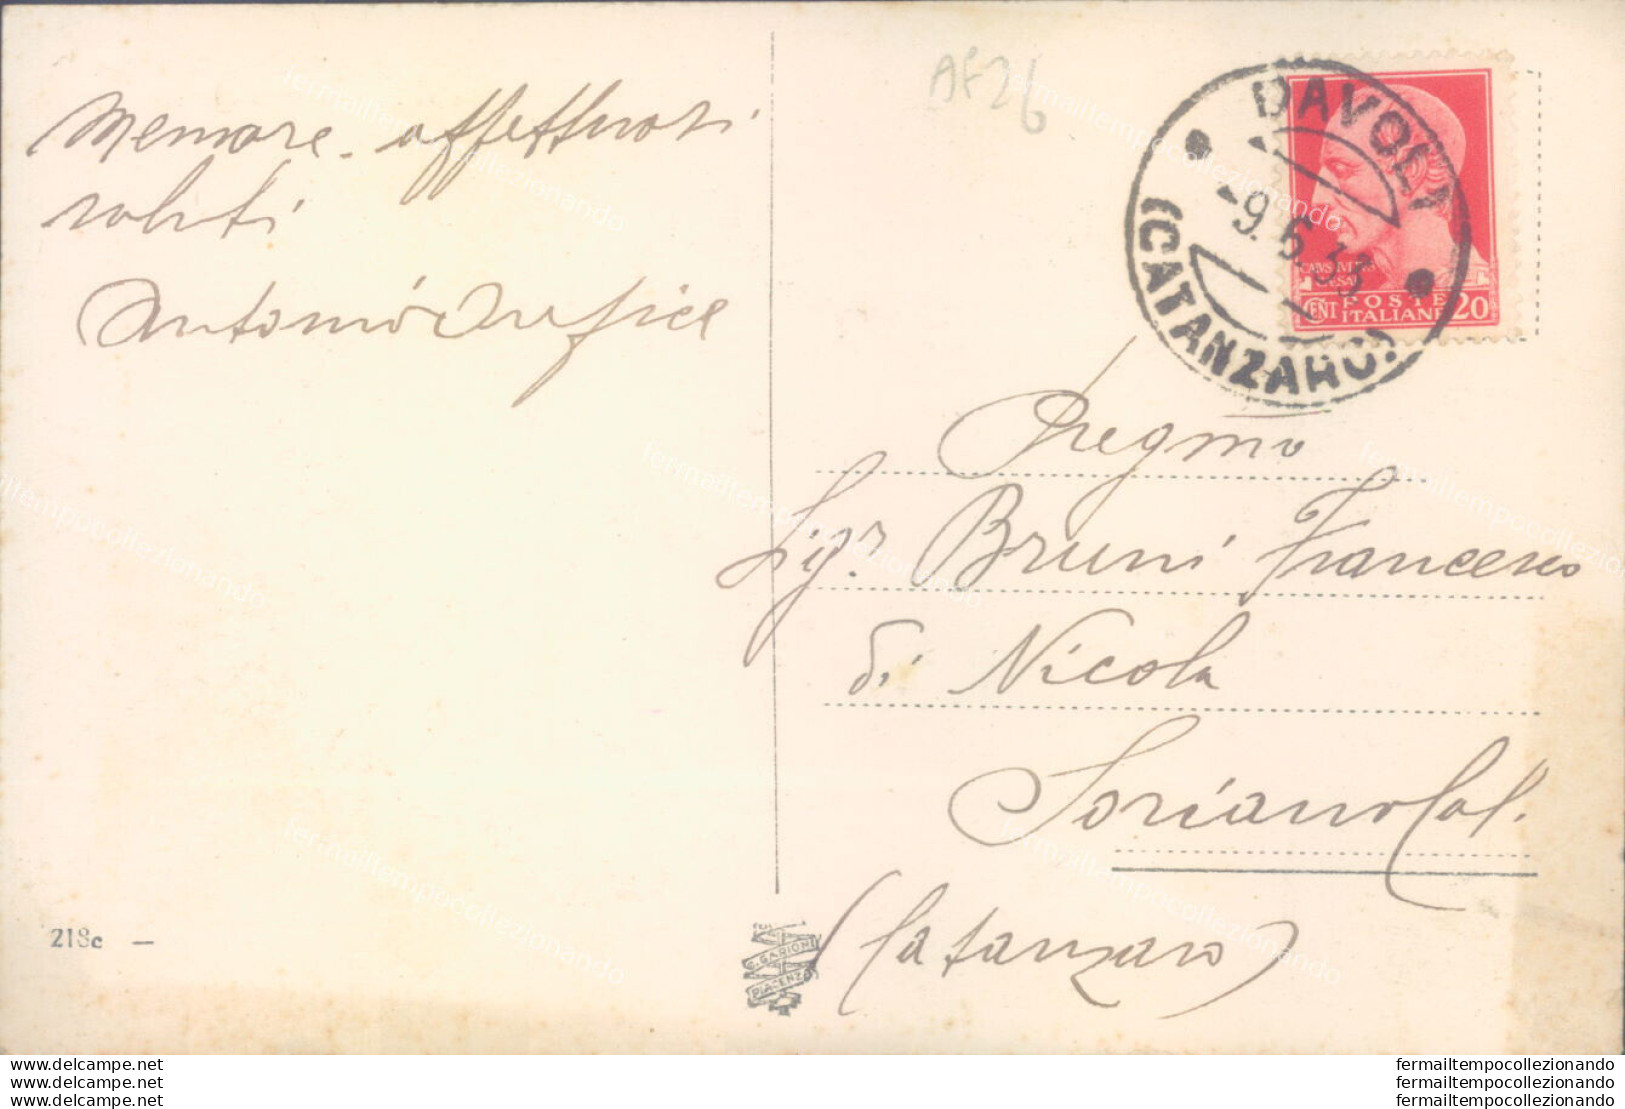 AF26
Memore affettuosi
saluti
Antonio Orefice
DAVOLI
-9.6.33
(CATANZARO)
CAIVS IVLIVS
CAESAR
POSTE
CENT ITALIANE 20
Pregmo
Sig. Bruni Francesco
di Nicola
Soriano Cal.
(Catanzaro)
218c —
G. GARIONI
PIACENZA
fermailtempocollezionando
www.delcampe.net fermailtempocollezionando
www.delcampe.net fermailtempocollezionando
www.delcampe.net fermailtempocollezionando